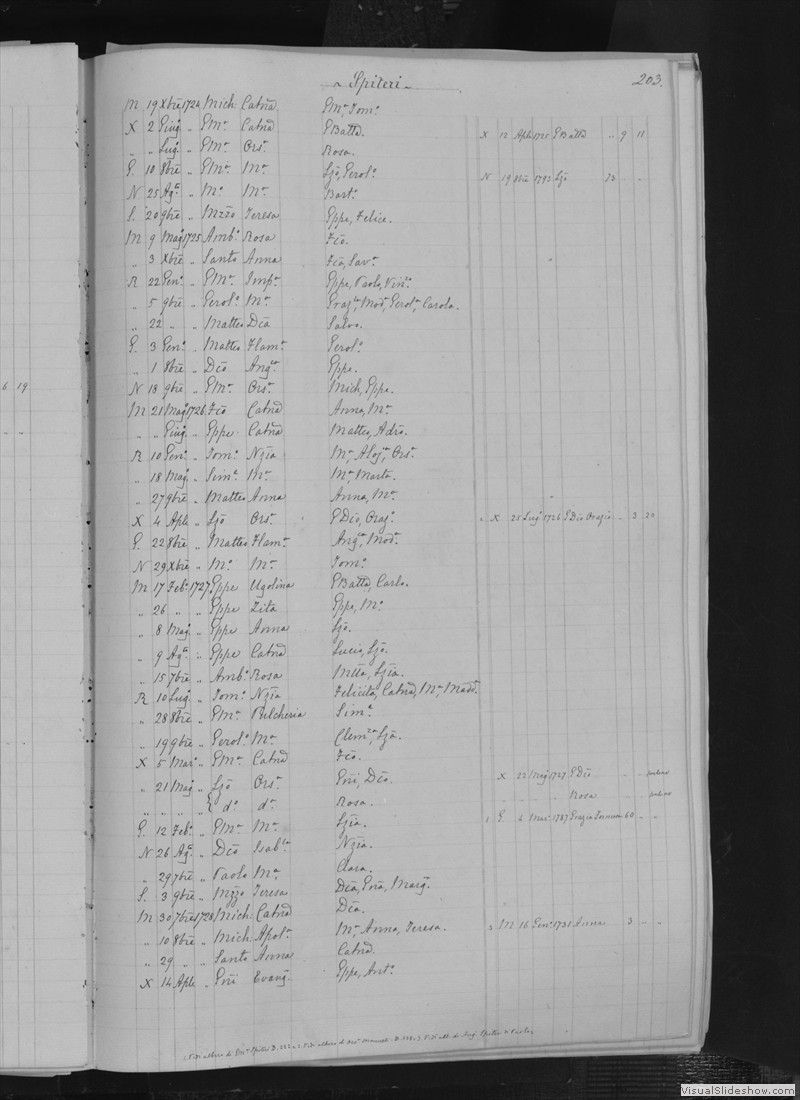 Spiteri
203.
M 19 Xbre 1724 Mich. Catna. Gma, Toma.
X 2 Giug. „ Gma. Catna Gbatta. X 12 Aple 1725 Gbatta „ 9 11
„ „ Lug. „ Gma. Ors. Rosa.
G. 10 8bre „ Gma. Ma. Ljo, Gerol. N 19 8bre 1793 Ljo 73 „ „
N 25 Aga „ Ma. Ma. Bart.
S. 20 9bre „ Mzzo Teresa Gppe, Felice.
M 9 Mag. 1725 Amb. Rosa Fco.
„ 3 Xbre „ Santo Anna Fco, Sav.
R 22 Gen. „ Gma. Imp. Gppe, Paolo, Vin.
„ 5 9bre „ Gerol. Ma. Graz, Mod, Gerol, Carola.
„ 22 „ „ Matteo Dca Salvo.
G. 3 Gen. „ Matteo Flam. Gerol.
„ 1 8bre „ Dco Ang. Gppa.
N 18 9bre „ Gma. Ors. Mich, Gppa.
6 19
M 21 Mag. 1726 Fco Catna Anna, Ma.
„ „ Giug. „ Gppe Catna Matteo, Adra.
R 10 Gen. „ Tom. Nzia Ma, Aloj, Ors.
„ 18 Mag. „ Sim. Ma. Ma, Marta.
„ 27 9bre „ Matteo Anna Anna, Ma.
X 4 Aple „ Ljo Ors. GDco, Oraz. X 25 Lug. 1726 GDco Orazio „ 3 20
G. 22 8bre „ Matteo Flam. Ang, Mod.
N 29 Xbre „ Ma. Ma. Tom.
M 17 Feb. 1727 Gppe Ugolina Gbatta, Carlo.
„ 26 „ „ Gppe Zita Gppe, Ma.
„ 8 Mag. „ Gppe Anna Ljo.
„ 9 Aga „ Gppe Catna Lucio, Ljo.
„ 15 7bre „ Amb. Rosa Mtta, Ljia.
R 10 Lug. „ Tom. Nzia Felicita, Catna, Ma, Madd.
„ 28 8bre „ Gma. Pulcheria Sim.
„ 19 9bre „ Gerol. Ma. Clem, Ljo.
X 5 Mar. „ Gma. Catna Fco.
„ 21 Mag. „ Ljo Ors. Gni, Dco. X 22 Mag. 1727 GDco „ „
„ „ „ „ d. d. Rosa. „ „ „ Rosa „ „
G. 12 Feb. „ Gma. Ma. Ljia. 1 G. 4 Mar. 1787 Grazia 60 „ „
N 26 Aga „ Dco Isab. Nzia.
„ 29 7bre „ Paolo Ma. Clara.
S. 3 9bre „ Mzzo Teresa Dca, Gna, Marg.
M 30 7bre 1728 Mich. Catna Dca.
„ 10 8bre „ Mich. Apol. Ma, Anna, Teresa. 2 M 16 Gen. 1731 Anna 3 „ „
„ 29 „ „ Santo Anna Catna.
X 14 Aple „ Gni Evang. Gppe, Ant.
VisualSlideshow.com